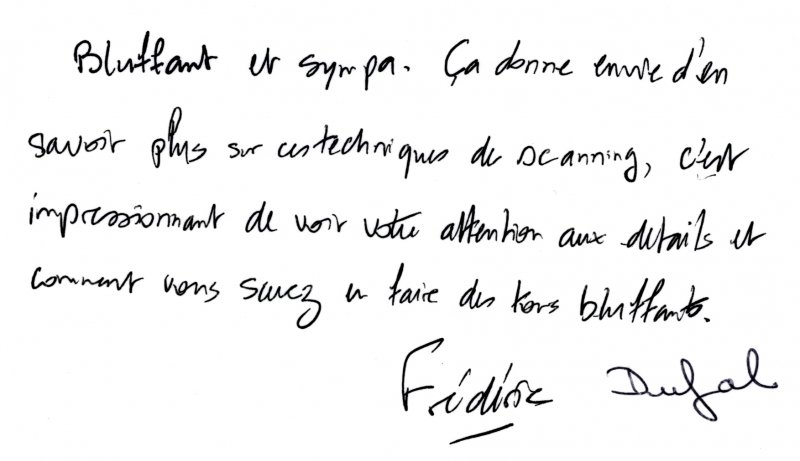 Bluffant et sympa. Ça donne envie d'en
savoir plus sur ces techniques de scanning, c'est
impressionnant de voir votre attention aux détails et
comment vous savez en faire des tours bluffants.
Frédéric